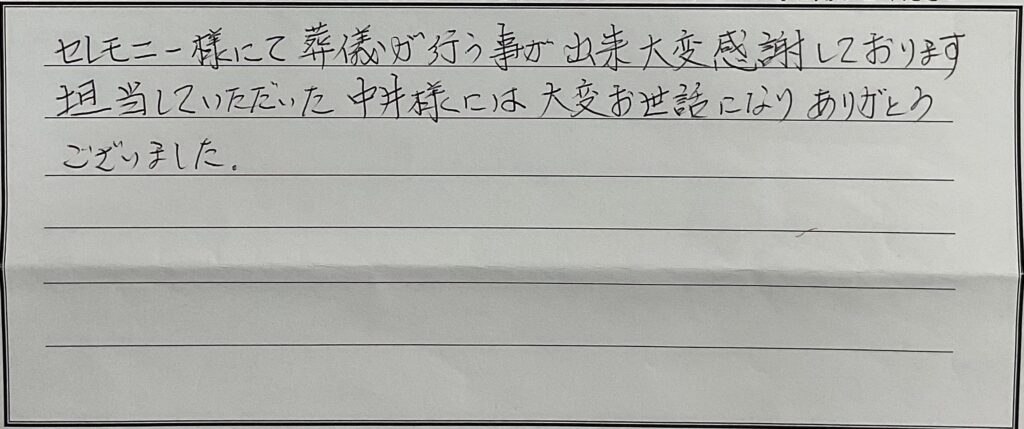 セレモニー様にて葬儀が行う事が出来大変感謝しております
担当していただいた中井様には大変お世話になりありがとう
ございました。